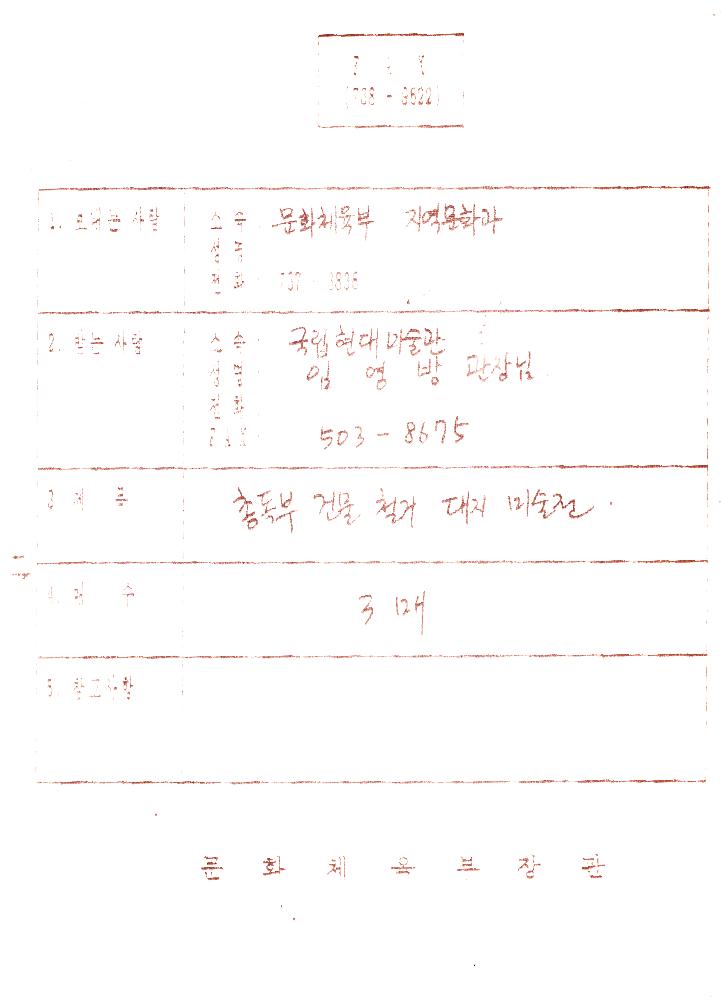 (738 - 3622)
1. 보내는 사람
소속 : 문화체육부 지역문화과
성명
전화 : 737 - 3836
2. 받는 사람
소속 : 국립현대미술관
성명 : 임 영 방 관장님
전화
FAX : 503 - 8675
3. 제 목
총독부 건물 철거 대지 미술전.
4. 매 수
3 매
5. 참고사항
문 화 체 육 부 장 관